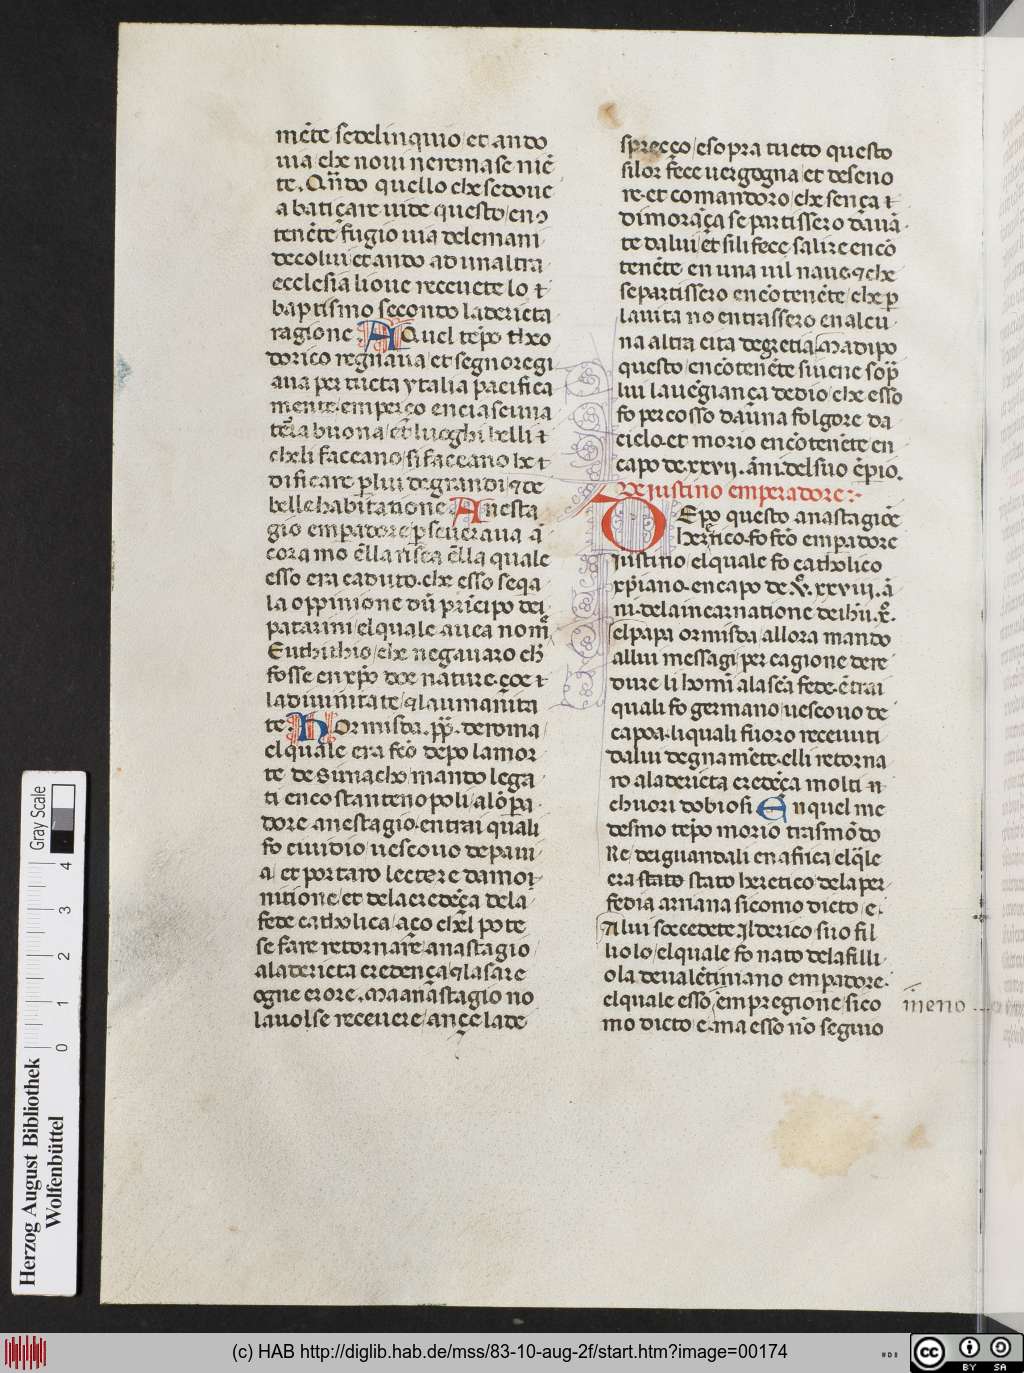 mēte se delinquio et ando
uia che noui ne remase niē
te. Qñdo quello che se doue
a batiçare uide questo en 
tenēte fugio uia dele mani
de colui et ando ad un altra
ecclesia li oue receuete lo 
baptismo secondo la dericta
ragione. A Quel tēpo theo
dorico regnaua et segnoregi
aua per tucta ytalia pacifica
mente emperço en ciascuna
tēra buona et luoghi belli 
che li faceano si faceano he 
dificare p lui de grandi de
belle habitatione Anesta
gio empadore pseueraua ā
cora mo ella risca ella quale
esso era caduto che esso seqa
la oppinione dū principo dei
patarini el quale auea nom
Euthithio che negauaro ch
fosse en xpo doe nature çoe 
la diuinitate la umanita
te. Hormisda pp de roma
el quale era feo depo la mor
te de Simacho mando lega
ti en costantenopoli alo pa
dore anestagio entrai quali
fo euidio uescouo de paui
a et portaro lectere damoi
nitione et dela credēça dela
fede catholica aço chel pote
se fare retornare anastagio
ala dericta credença la sare
ogne erore. Ma anastagio no
la uolse receuere ançe la de
spreçço e sopra tucto questo
si lor fece uergogna et deseno
re et comandoro che sença 
dimorāça se partissero dauā
te da lui et si li fece salire encō
tenēte en una uil naue che
se partissero encōtenēte che p
la uita no entrassero en alcu
na altra cita de gretia. Ma dipo
questo encōtenēte si uene sop
lui la uēgiança de dio che esso
fo percosso da una folgore da
cielo et morio encōtenēte en
capo de xxvii. āni del suo epio.
De justino emperadore:
DEpo questo anastagioe
heretico fo feo empadore
justino el quale fo catholico
xpiano en capo de . xxviii. ā
ni dela incarnatione de ihu x.
el papa ormisda allora mando
allui messagi per cagione de re
dure li homi ala sca fede entrai
quali fo germano uescouo de
capoa li quali fuoro receuuti
da lui degnamēte elli retorna
ro ala dericta credēça molti 
chuori dobiosi En quel me
desmo tēpo morio trasmōdo
Re dei guandali en africa el qle
era stato stato heretico dela per
fedia arriana si como dicto e.
A lui socedete Ilderico suo fil
liolo el quale fo nato dela filli
ola de ualentiniano empadore
el quale esso em pregione si co
mo dicto e ma esso no seguio
meno
Gray Scale
4
3
2
1
0
Herzog August Bibliothek
Wolfenbüttel
(c) HAB http://diglib.hab.de/mss/83-10-aug-2f/start.htm?image=00174
cc BY SA